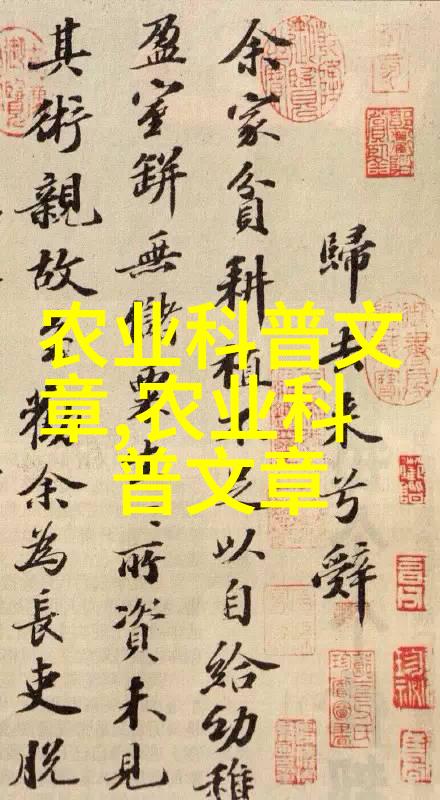 歸去来兮辭
余家貧耕植不足以自給幼稚
盈室缾無儲粟生〻所資未見
其術親故多勸余為長吏脱
农业科普文
章,农业科
普文章